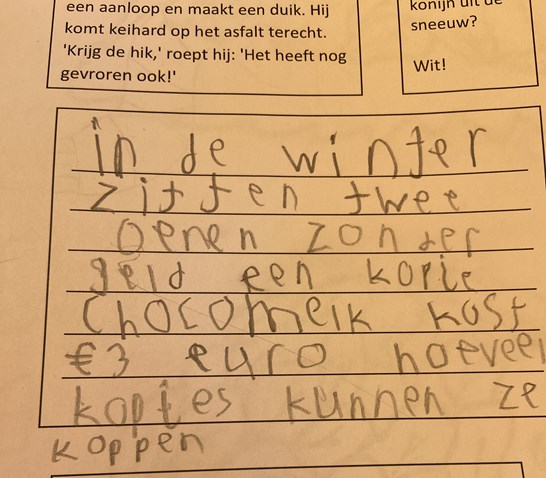 een aanloop en maakt een duik. Hij
komt keihard op het asfalt terecht.
'Krijg de hik,' roept hij: 'Het heeft nog
gevroren ook!'
konijn uit de
sneeuw?
Wit!
in de winter
zitten twee
Oenen zonder
geld een kopie
Chocomelk kost
€3 euro hoeveel
kopies kunnen ze
koppen